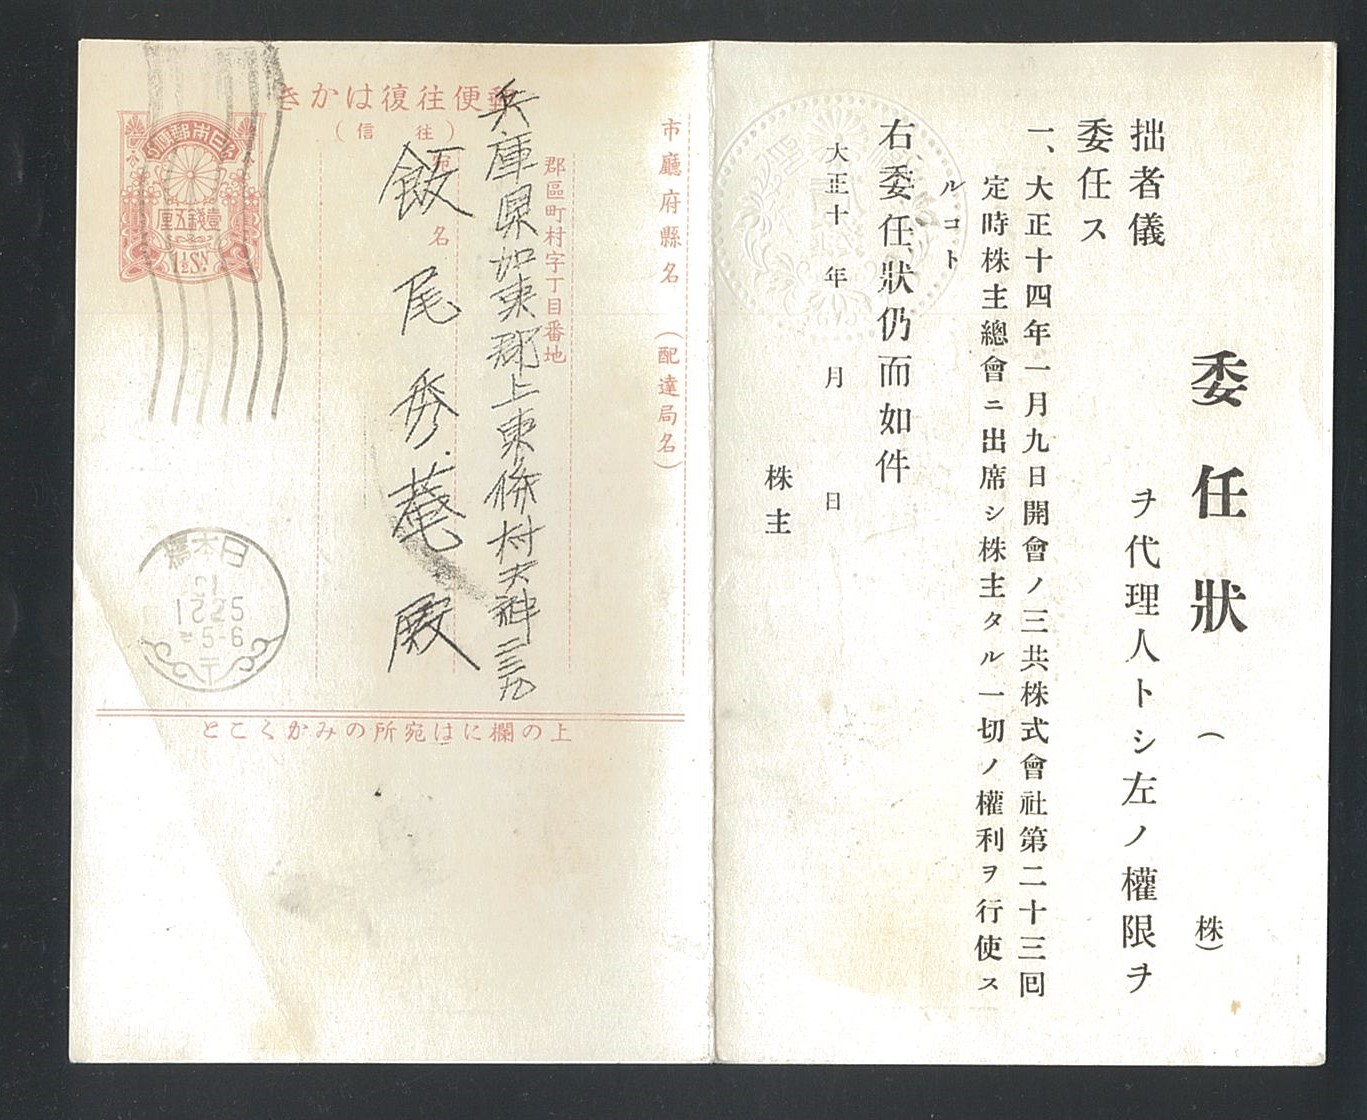 委任狀（　　株）
拙者儀　　　　　ヲ代理人トシ左ノ權限ヲ
委任ス
一、大正十四年一月九日開會ノ三共株式會社第二十三囘
定時株主總會ニ出席シ株主タル一切ノ權利ヲ行使ス
ルコト
右委任狀仍而如件
大正十　年　　月　　日
株主
郵便往復はかき
（往信）
市廳府縣名（配達局名）
郡區町村字丁目番地
兵庫県加東郡上東條村天神二三九
宛名
飯尾秀菴殿
大日本帝國郵便
壹錢五厘
1½Sn.
日本橋
13
12 25
5-6
〒
上の欄には宛所のみかくこと